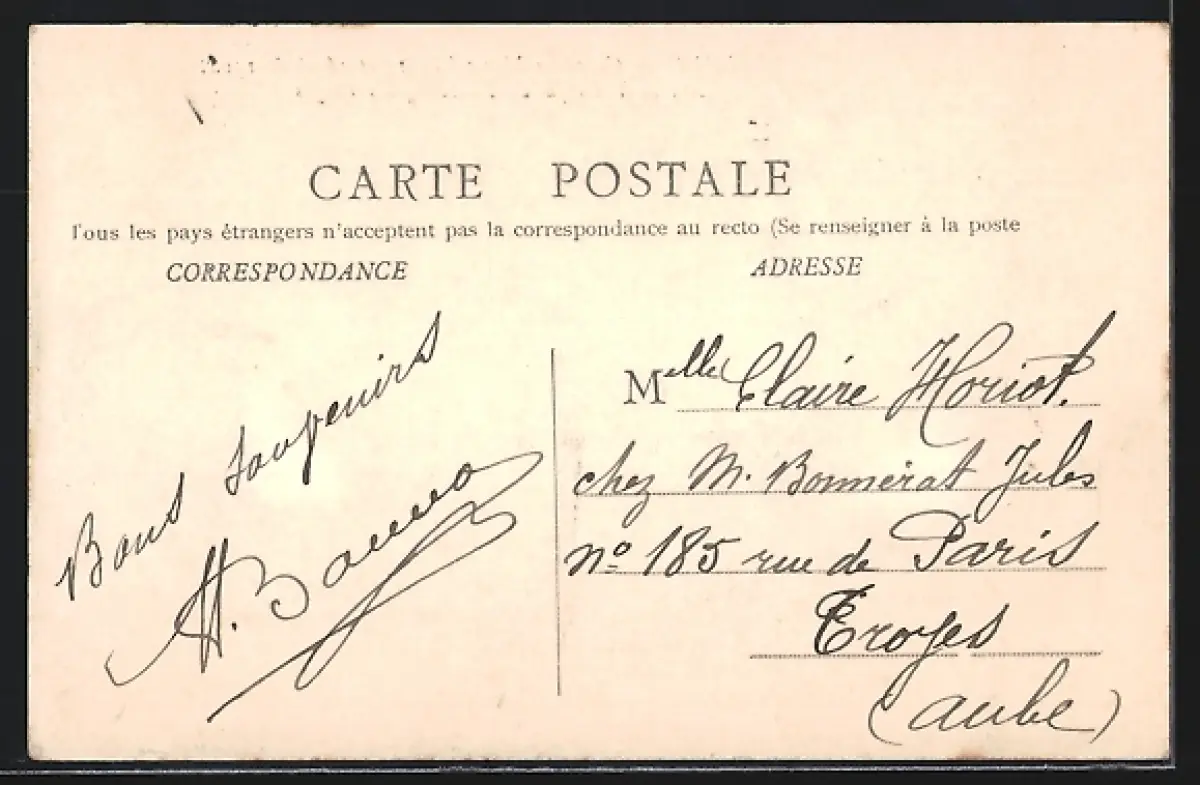 CARTE POSTALE
Tous les pays étrangers n'acceptent pas la correspondance au recto (Se renseigner à la poste
CORRESPONDANCE
ADRESSE
Bons souvenirs
H.
Melle Claire Horiot.
chez M. Bonnérat Jules
nº 185 rue de Paris
Troyes
(aube)